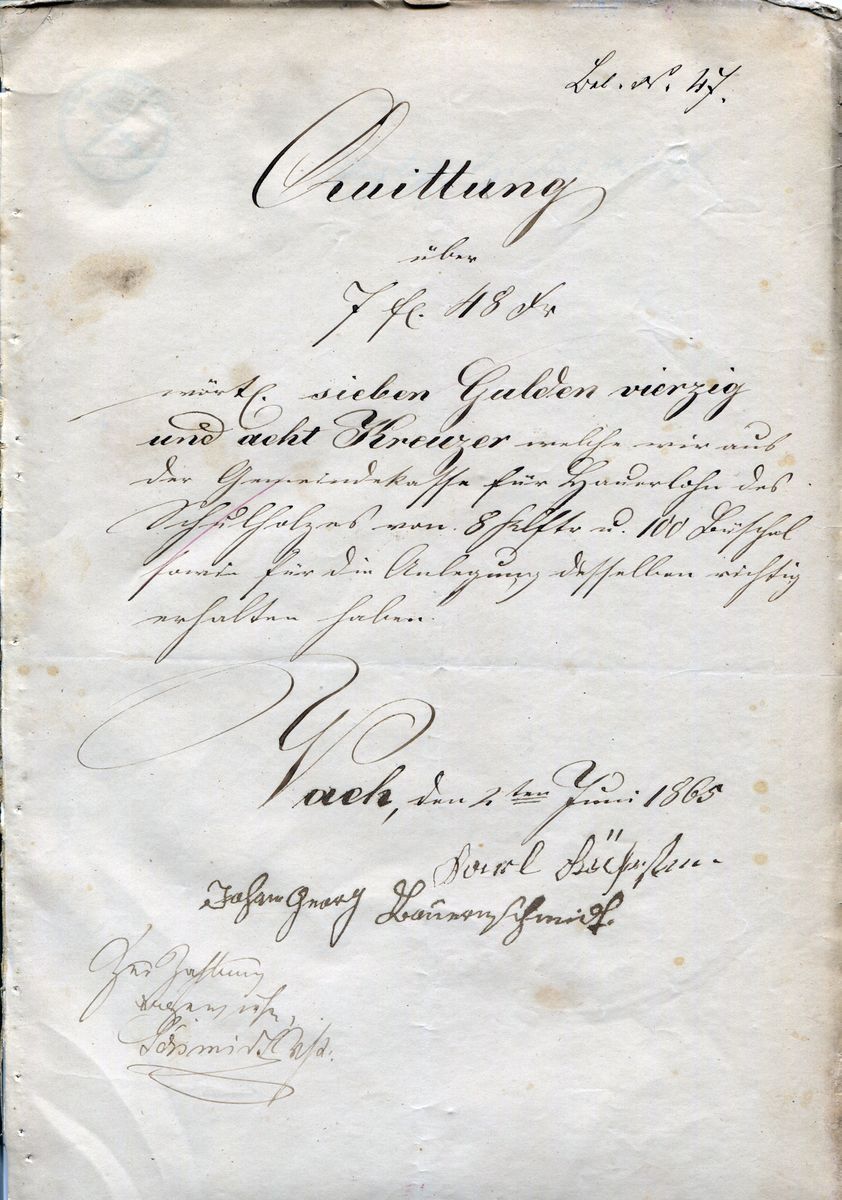 Bel. N. 47.
Quittung
über
7 fl. 48 Kr
wörtl. sieben Gulden vierzig
und acht Kreuzer welche wir aus
der Gemeindekasse für Hauerlohn des
Schulholzes von 8 Klftr u. 100 Büschel
sowie für die Anlegung desselben richtig
erhalten haben.
Vach, den 2ten Juni 1865
Karl
Johann Georg Bauernschmidt.
Zur Zahlung
angewiesen,
Schmidt